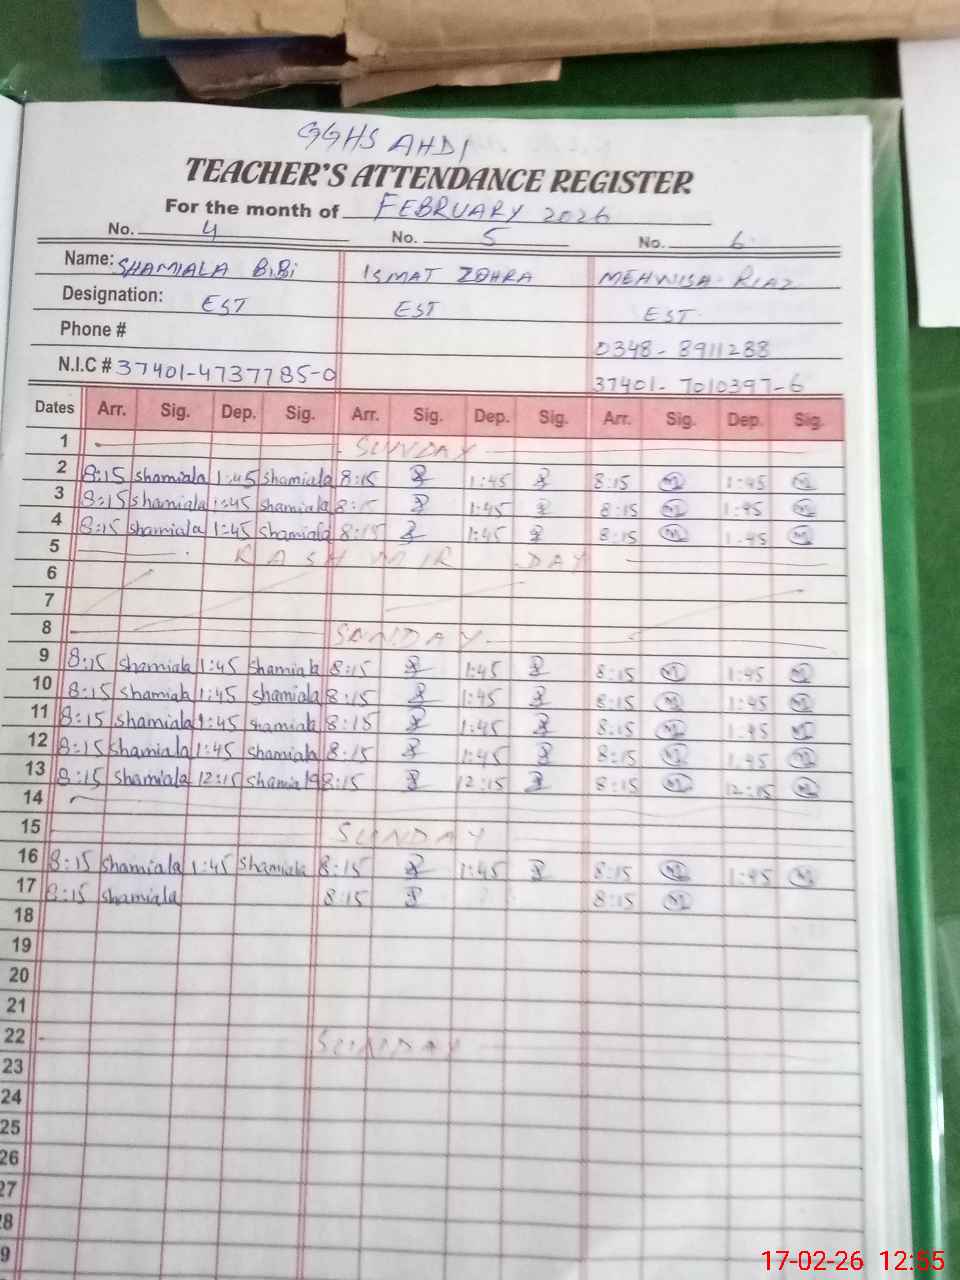 GGHS AHDI
TEACHER'S ATTENDANCE REGISTER
For the month of FEBRUARY 2026
No. 4 No. 5 No. 6
Name: SHAMIALA BiBi ISMAT ZOHRA MEHWISH RIAZ
Designation: EST EST EST
Phone # 0348-8911288
N.I.C # 37401-4737785-0 37401-7010397-6
Dates Arr. Sig. Dep. Sig. Arr. Sig. Dep. Sig. Arr. Sig. Dep. Sig.
1 SUNDAY
2 8:15 Shamiala 1:45 Shamiala 8:15 1:45 8:15 M 1:45 M
3 8:15 Shamiala 1:45 Shamiala 8:15 1:45 8:15 M 1:45 M
4 8:15 Shamiala 1:45 Shamiala 8:15 1:45 8:15 M 1:45 M
5 KASHMIR DAY
6
7
8 SUNDAY
9 8:15 Shamiala 1:45 Shamiala 8:15 1:45 8:15 M 1:45 M
10 8:15 Shamiala 1:45 Shamiala 8:15 1:45 8:15 M 1:45 M
11 8:15 Shamiala 1:45 Shamiala 8:15 1:45 8:15 M 1:45 M
12 8:15 Shamiala 1:45 Shamiala 8:15 1:45 8:15 M 1:45 M
13 8:15 Shamiala 12:15 Shamiala 8:15 12:15 8:15 M 12:15 M
14
15 SUNDAY
16 8:15 Shamiala 1:45 Shamiala 8:15 1:45 8:15 M 1:45 M
17 8:15 Shamiala 8:15 8:15 M
18
19
20
21
22 SUNDAY
23
24
25
26
27
28
9
17-02-26 12:55